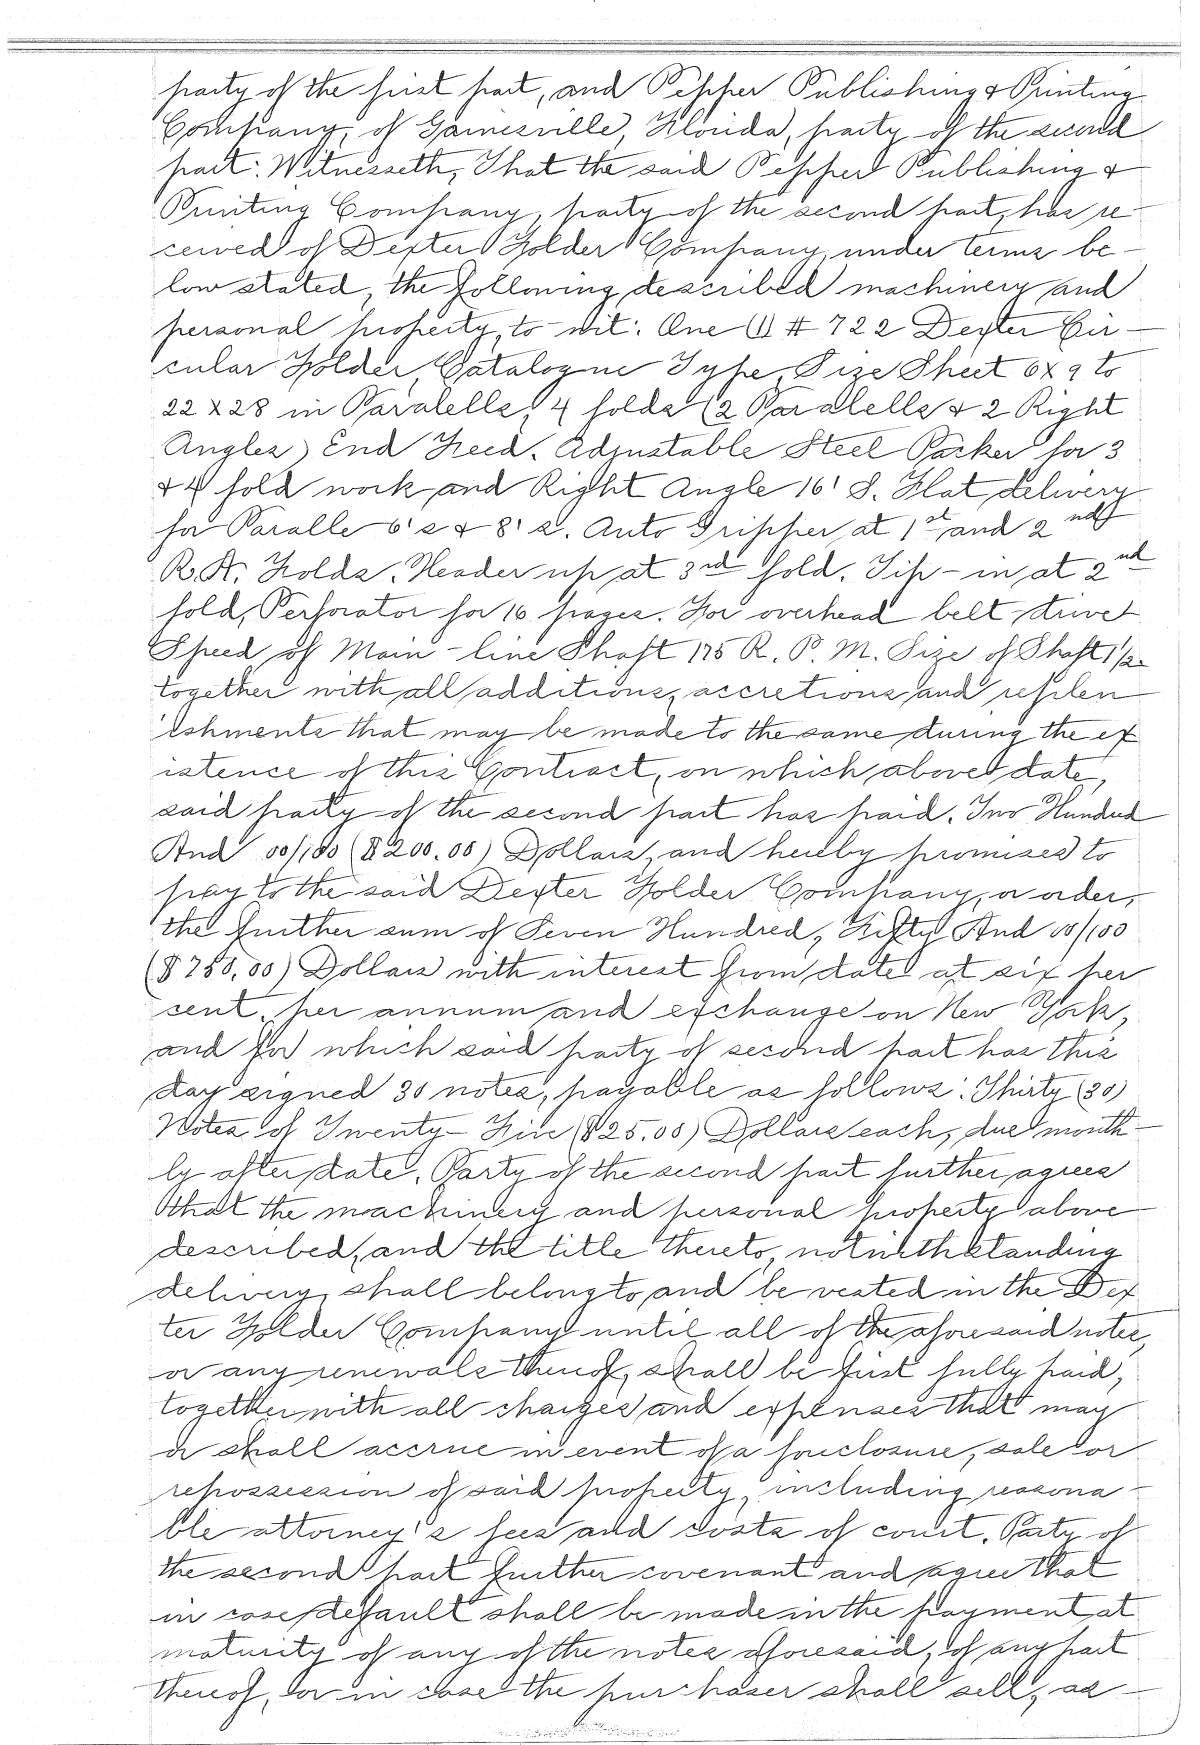 party of the first part, and Pepper Publishing & Printing
Company, of Gainesville, Florida, party of the second
part: Witnesseth, That the said Pepper Publishing &
Printing Company, party of the second part, has re-
ceived of Dexter Folder Company, under terms be-
low stated, the following described machinery and
personal property, to-wit: One (1) # 722 Dexter Cir-
cular Folder, Catalogue Type, Size Sheet 6x9 to
22 x 28 in Paralells, 4 folds (2 Paralells & 2 Right
Angles) End Feed. Adjustable Steel Packer for 3
& 4 fold work and Right Angle 16' S. Flat delivery
for Paralle 6's & 8's. Auto Gripper at 1st and 2nd
R.A. Folds. Header up at 3rd fold. Tip-in at 2nd
fold, Perforator for 16 pages. For overhead belt drive
Speed of Main-line Shaft 175 R. P. M. Size of Shaft 1 1/2
together with all additions, accretions and replen
ishments that may be made to the same during the ex
istence of this Contract, on which above date,
said party of the second part has paid. Two Hundred
And 00/100 ($200.00) Dollars, and hereby promises to
pay to the said Dexter Folder Company, or order,
the further sum of Seven Hundred, Fifty And 00/100
($750.00) Dollars with interest from date at six per
cent. per annum and exchange on New York,
and for which said party of second part has this
day signed 30 notes, payable as follows: Thirty (30)
Notes of Twenty-Five ($25.00) Dollars each, due month-
ly after date. Party of the second part further agrees
that the machinery and personal property above
described, and the title thereto, notwithstanding
delivery, shall belong to and be vested in the Dex
ter Folder Company until all of the aforesaid notes,
or any renewals thereof, shall be first fully paid,
together with all charges and expenses that may
or shall accrue in event of a foreclosure, sale or
repossession of said property, including reasona-
ble attorney's fees and costs of court. Party of
the second part further covenant and agree that
in case default shall be made in the payment at
maturity of any of the notes aforesaid, of any part
thereof, or in case the purchaser shall sell, as-